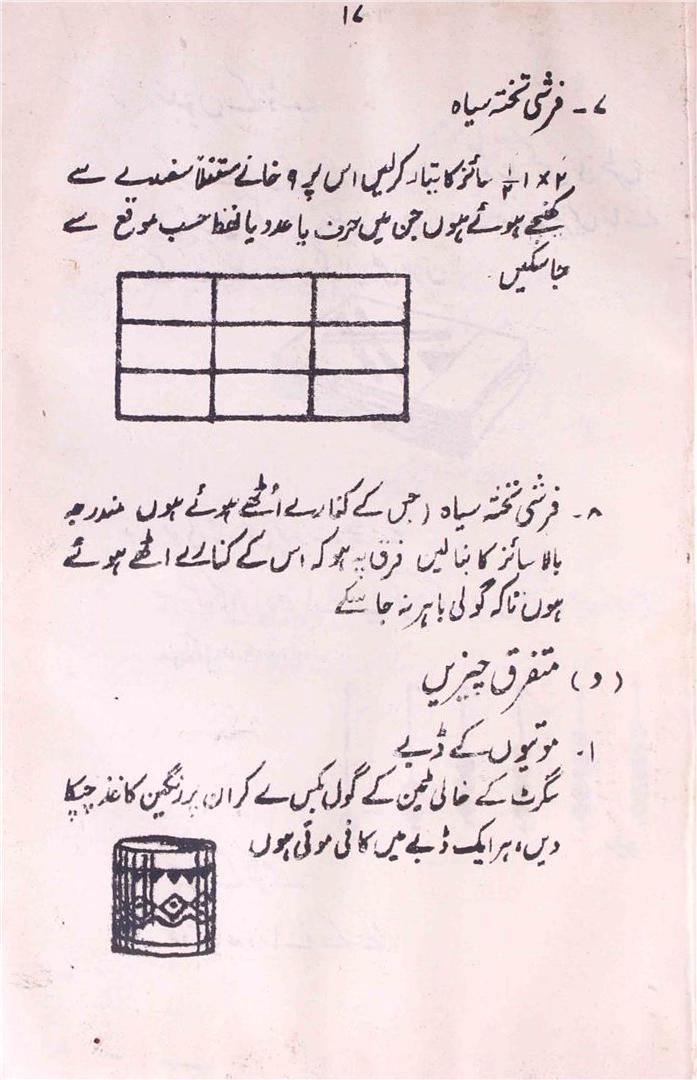 ۱۷
۷۔ فرشی تختہ سیاہ
۲ × ۱ ۱/۲ سائز کا تیار کرلیں اس پر ۹ خانے مستقلاً سفیدے سے
کھنچے ہوئے ہوں جن میں حرف یا عدد یا لفظ حسب موقع سے
جاسکیں
۸۔ فرشی تختہ سیاہ (جس کے کنارے اُٹھے ہوئے ہوں مندرجہ
بالا سائز کا بنالیں فرق یہ ہو کہ اس کے کنارے اٹھے ہوئے
ہوں تاکہ گولی باہر نہ جاسکے
(د) متفرق چیزیں
۱۔ موتیوں کے ڈبے
سگرٹ کے خالی ٹین کے گول بکس لے کر ان پر رنگین کاغذ چپکا
دیں، ہر ایک ڈبے میں کافی موتی ہوں